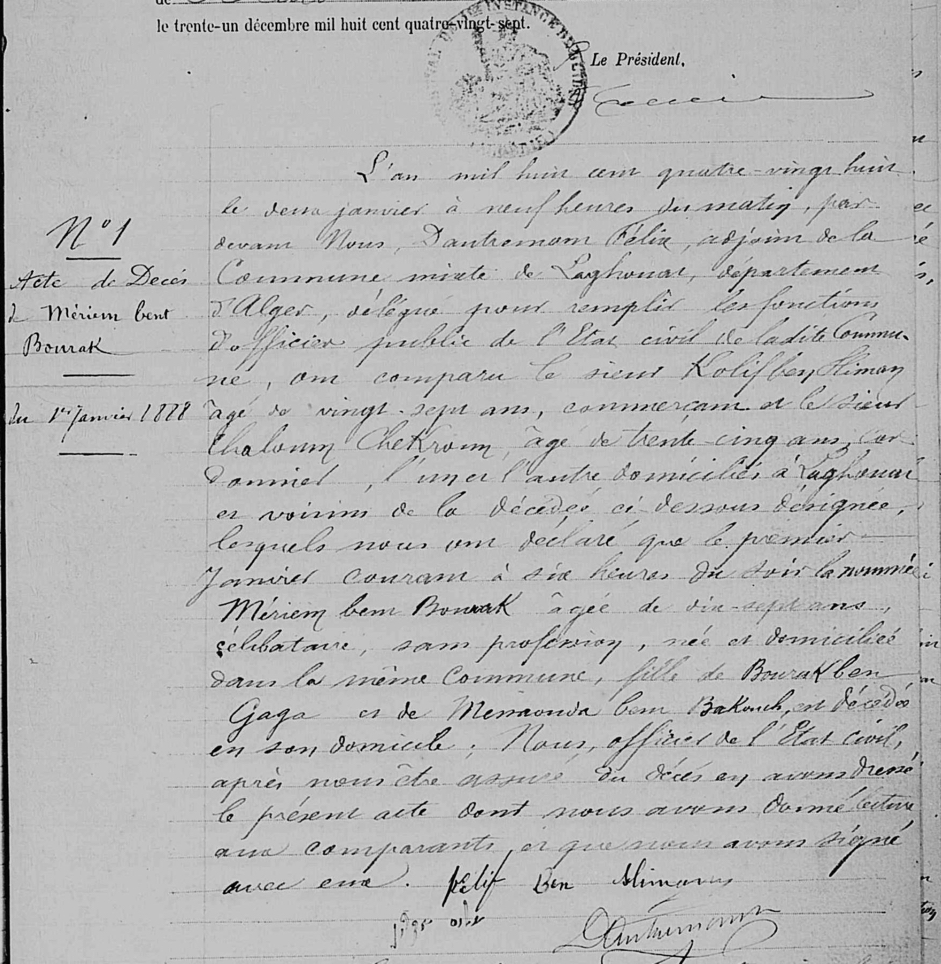 le trente-un décembre mil huit cent quatre-vingt-sept.
Le Président,
N° 1
Acte de Décès
de Mériem bent
Bourak
du 1er Janvier 1888
L'an mil huit cent quatre-vingt huit
le deux janvier à neuf heures du matin, par
devant Nous, Dautremont Félix, adjoint de la
Commune mixte de Laghouat, département
d'Alger, délégué pour remplir les fonctions
d'officier public de l'Etat civil de ladite Commu-
ne, ont comparu le sieur Kolif ben Sliman
âgé de vingt-sept ans, commerçant et le sieur
Chaloum Chekroun, âgé de trente-cinq ans, cor
donnier, l'un et l'autre domiciliés à Laghouat
et voisins de la décédée ci-dessous désignée,
lesquels nous ont déclaré que le premier
Janvier courant à six heures du soir la nommée
Mériem bent Bourak âgée de dix-sept ans,
célibataire, sans profession, née et domiciliée
dans la même Commune, fille de Bourak ben
Gaga et de Messaouda bent Bakouch, est décédée
en son domicile ; Nous, officier de l'Etat civil,
après nous être assuré du décès en avons dressé
le présent acte dont nous avons donné lecture
aux comparants, et que nous avons signé
avec eux. Ben Slimane
Dautremont